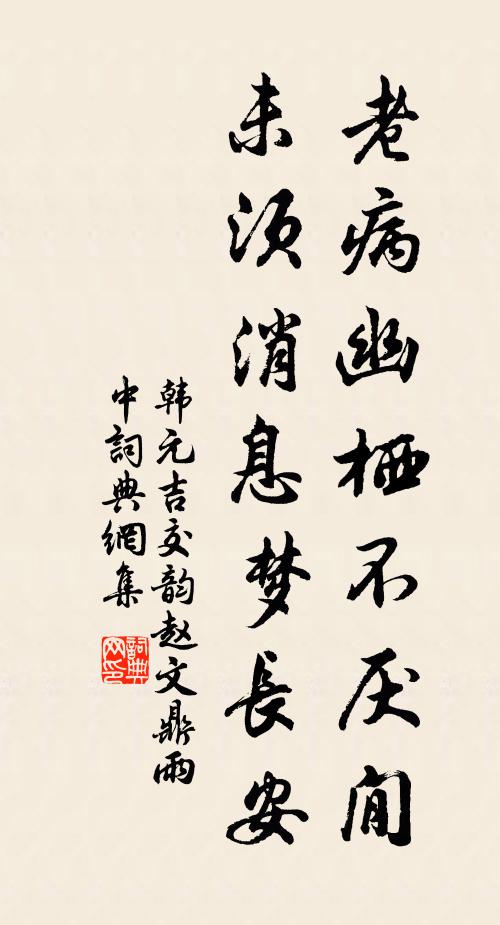 老病幽栖不厌閒
未须消息梦長安
韩元吉次韵赵文鼎雨
中詞典網集
詞典
网印